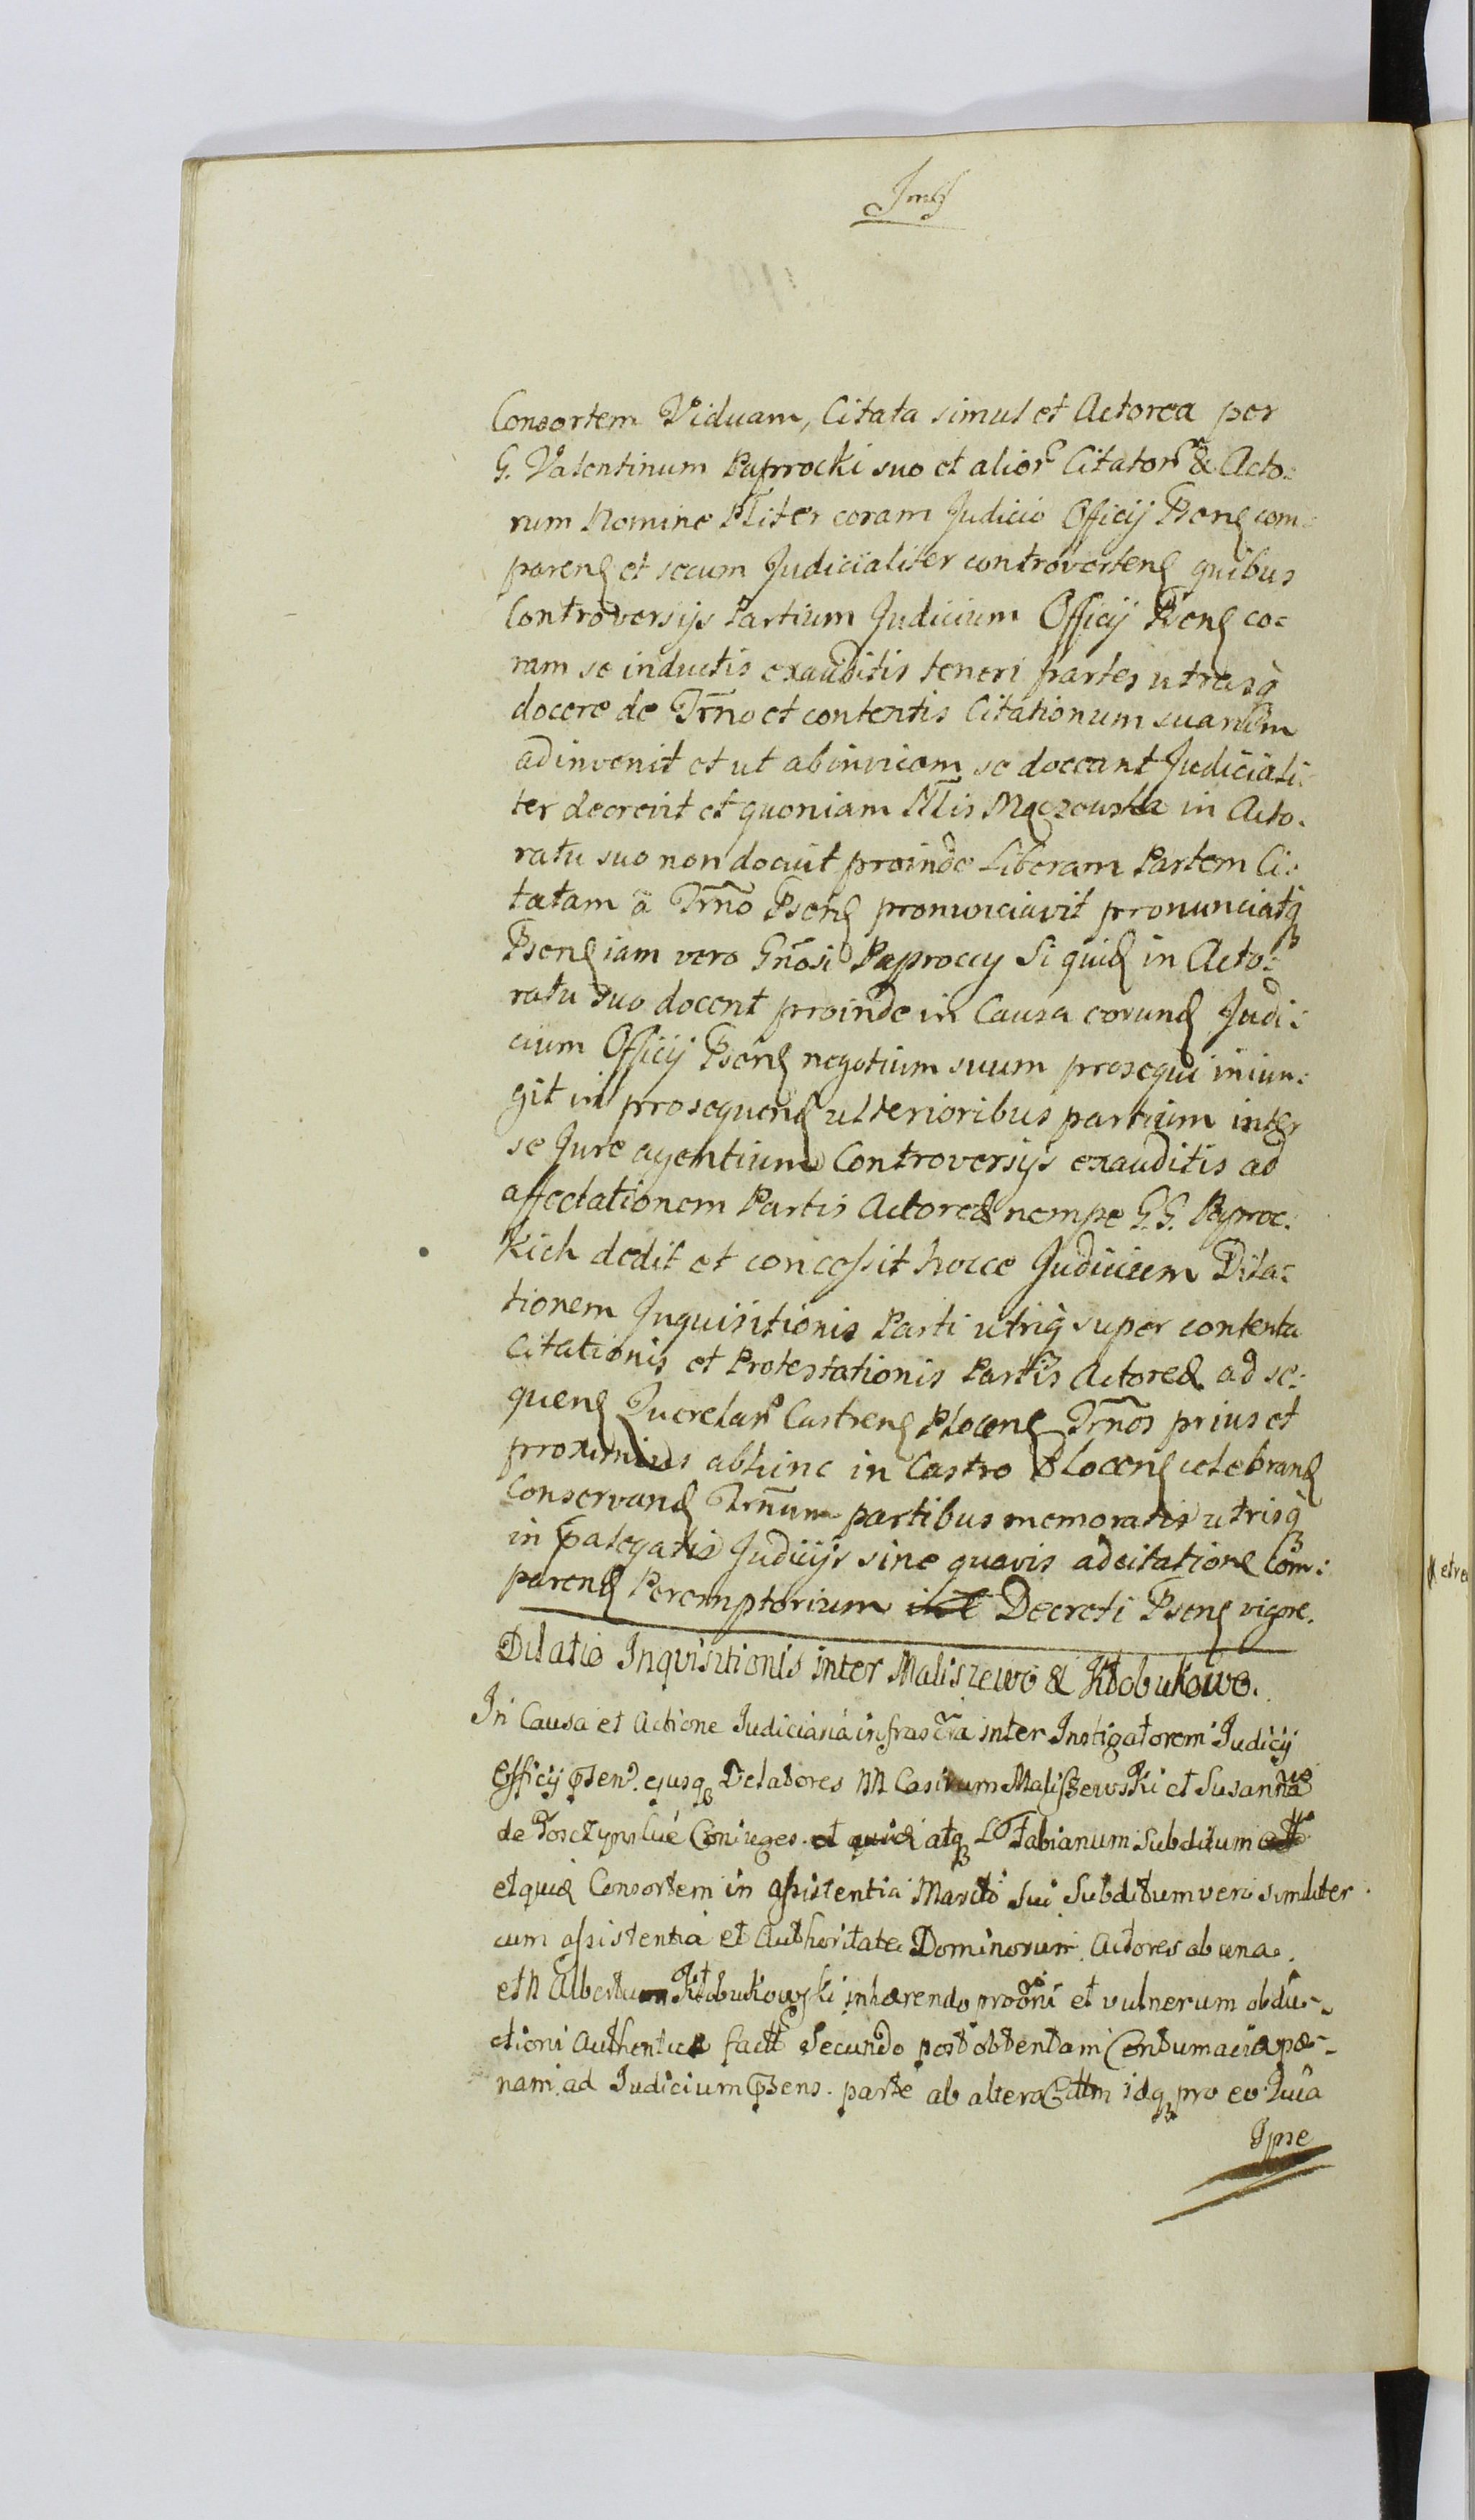 Consortem Viduam, Citata simul et Actorea per
G. Valentinum Paprocki suo et alior Citator & Acto:
rum Nomine Pliter coram Judicio Officij Psens com:
parens et secum Judicialiter controvertens quibus
Controversijs Partium Judicium Officij Psens co:
ram se inductis exauditis teneri partes utrasq
docere de Trno et contentis Citationum suarum
adinvenit et ut abinvicem se doceant Judiciali:
ter decrevit et quoniam Mączewska in Acto:
ratu suo non docuit proinde Liberam Partem Ci:
tatam a Trno Psens pronunciavit pronunciatq
Psens iam vero Gnosi Paproccy Si quid in Acto:
ratu suo docent proinde in Causa eorund Judi:
cium Officij Psens negotium suum prosequi iniun:
git in prosequend ulterioribus partium inter
se Jure agentium Controversijs exauditis ad
affectationem Partis Actoreæ nempe G.G. Paproc:
kich dedit et concessit hocce Judicium Dila:
tionem Inquisitionis Parti utriq super contenta
Citationis et Protestationis Partis Actoreæ ad se:
quens Querelar Castrens Plocens Trnos prius et
proximius abhinc in Castro Plocens celebrand
Conservand Trnum partibus memoratis utrisq
in palegatis Judicijs sine quavis adcitatione Com:
parend Peremptorium Decreti Psens vigore.
Dilatio Inquisitionis inter Maliszewo & Kłobukowo.
In Causa et Actione Judiciaria infrascra inter Instigatorem Judicij
Officij Psen. ejusq Delatores M Casimum Maliszewski et Susanna
de Coniuges atq L Fabianum Subditum
et quid Consortem in assistentia Mariti Sui Subditum vero similiter
cum assistentia et Authoritate Dominorum Actores ab una
et N Albertum Kłobukowski inhærendo proōni et vulnerum obdu-
ctioni Authenticæ fact Secundo post obtentam Contumaciæ pæ-
nam ad Judicium Psens. parte ab altera Cttm idq pro eo Quia
Ipse